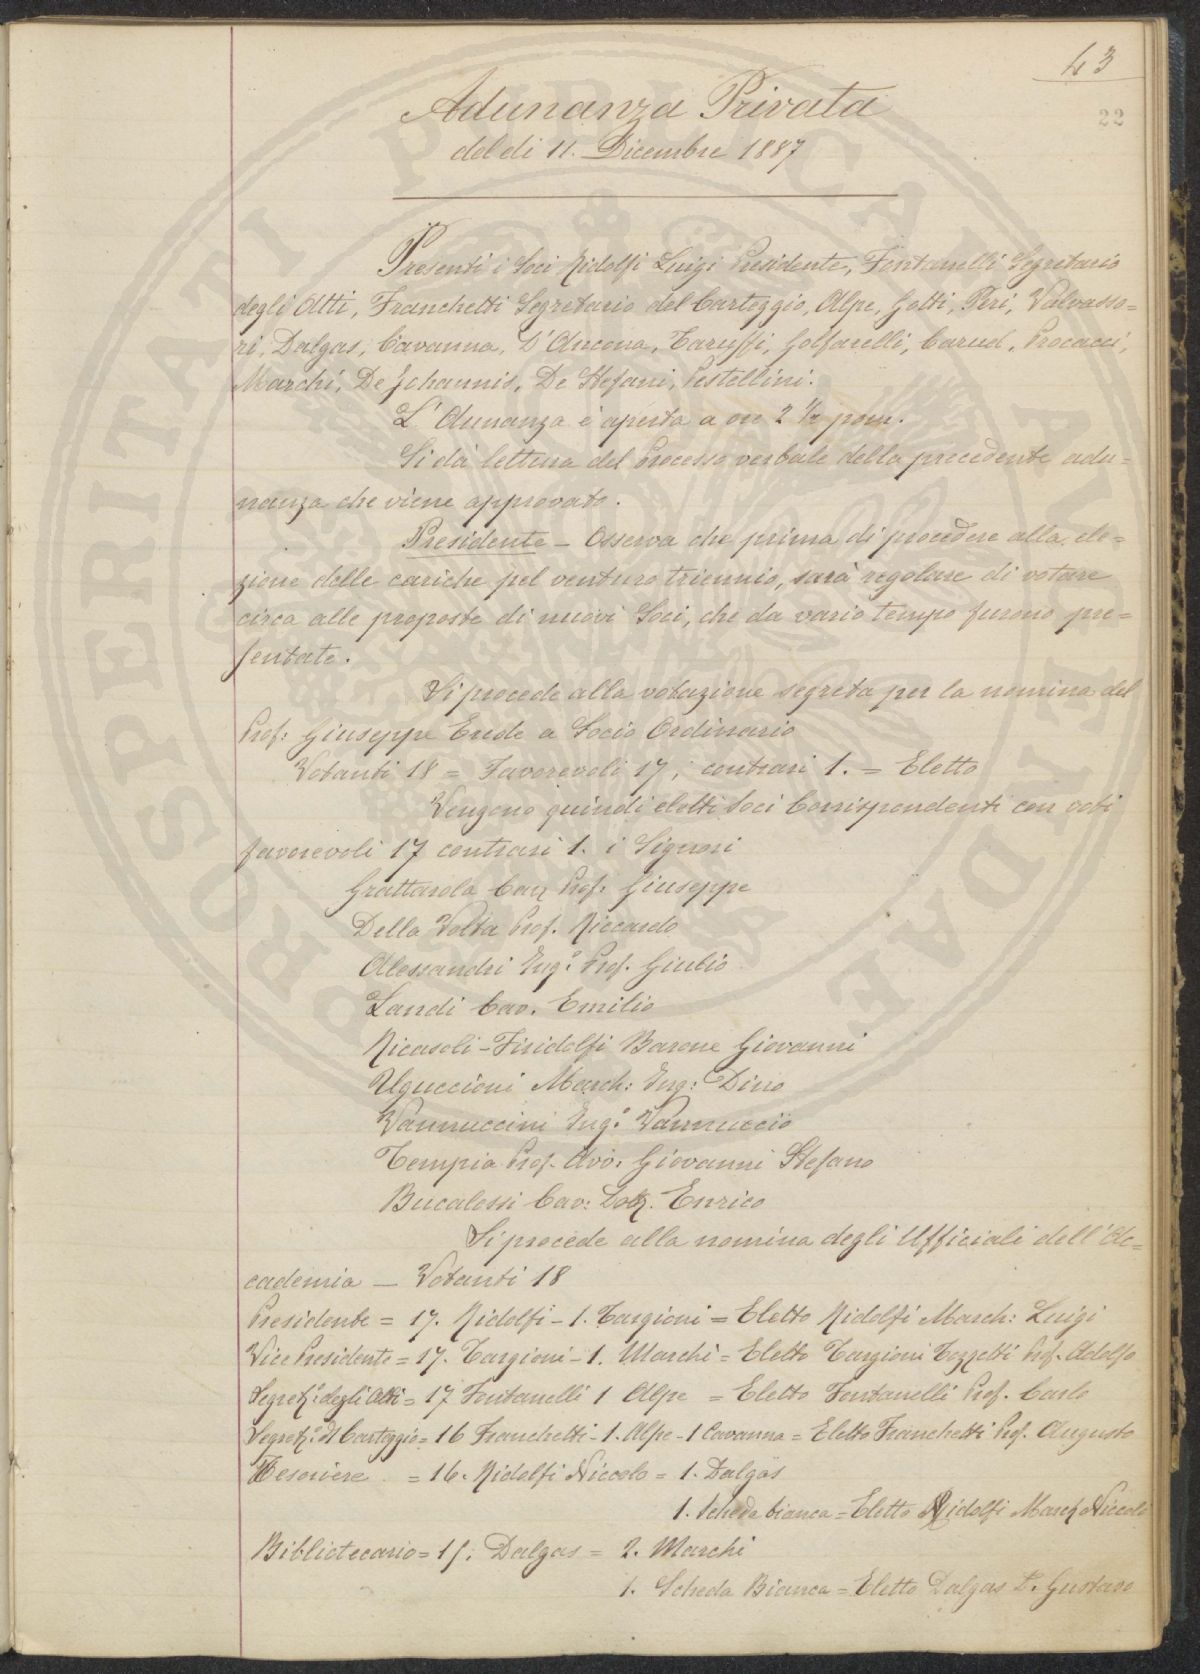 43
22
Adunanza Privata
del dì 11. Dicembre 1887
Presenti i Soci Ridolfi Luigi Presidente, Fontanelli Segretario
degli Atti, Franchetti Segretario del Carteggio, Alpe, Gotti, Peri, Valvasso=
ri, Dalgas, Cavanna, D'Ancona, Taruffi, Golfarelli, Caruel, Procacci,
Marchi, De Johannis, De Stefani, Pestellini.
L'Adunanza è aperta a ore 2 1/2 pom.
Si dà lettura del Processo verbale della precedente adu=
nanza che viene approvato.
Presidente – Osserva che prima di procedere alla ele=
zione delle cariche pel venturo triennio, sarà regolare di votare
circa alle proposte di nuovi Soci, che da vario tempo furono pre=
sentate.
Si procede alla votazione segreta per la nomina del
Prof: Giuseppe Erede a Socio Ordinario
Votanti 18 = Favorevoli 17, contrari 1. = Eletto
Vengono quindi eletti Soci Corrispondenti con voti
favorevoli 17 contrari 1. i Signori
Grattarola Cav Prof: Giuseppe
Della Volta Prof. Riccardo
Alessandri Ing.e Prof. Giulio
Landi Cav. Emilio
Ricasoli-Firidolfi Barone Giovanni
Uguccioni March: Ing: Dino
Vannuccini Ing.e Vannuccio
Tempia Prof. Avv. Giovanni Stefano
Bucalossi Cav: Dott. Enrico
Si procede alla nomina degli Ufficiali dell'Ac=
cademia — Votanti 18
Presidente = 17. Ridolfi – 1. Targioni = Eletto Ridolfi March: Luigi
Vice Presidente = 17. Targioni – 1. Marchi = Eletto Targioni Tozzetti Prof. Adolfo
Segret.o degli Atti = 17 Fontanelli 1 Alpe = Eletto Fontanelli Prof. Carlo
Segret.o del Carteggio = 16 Franchetti – 1. Alpe – 1 Cavanna = Eletto Franchetti Prof. Augusto
Tesoriere = 16. Ridolfi Niccolo = 1. Dalgas
1. Scheda bianca = Eletto Ridolfi March Niccolò
Bibliotecario = 15. Dalgas = 2. Marchi
1. Scheda Bianca = Eletto Dalgas Gustavo
PROSPERITATI PUBLICAE AUGENDAE